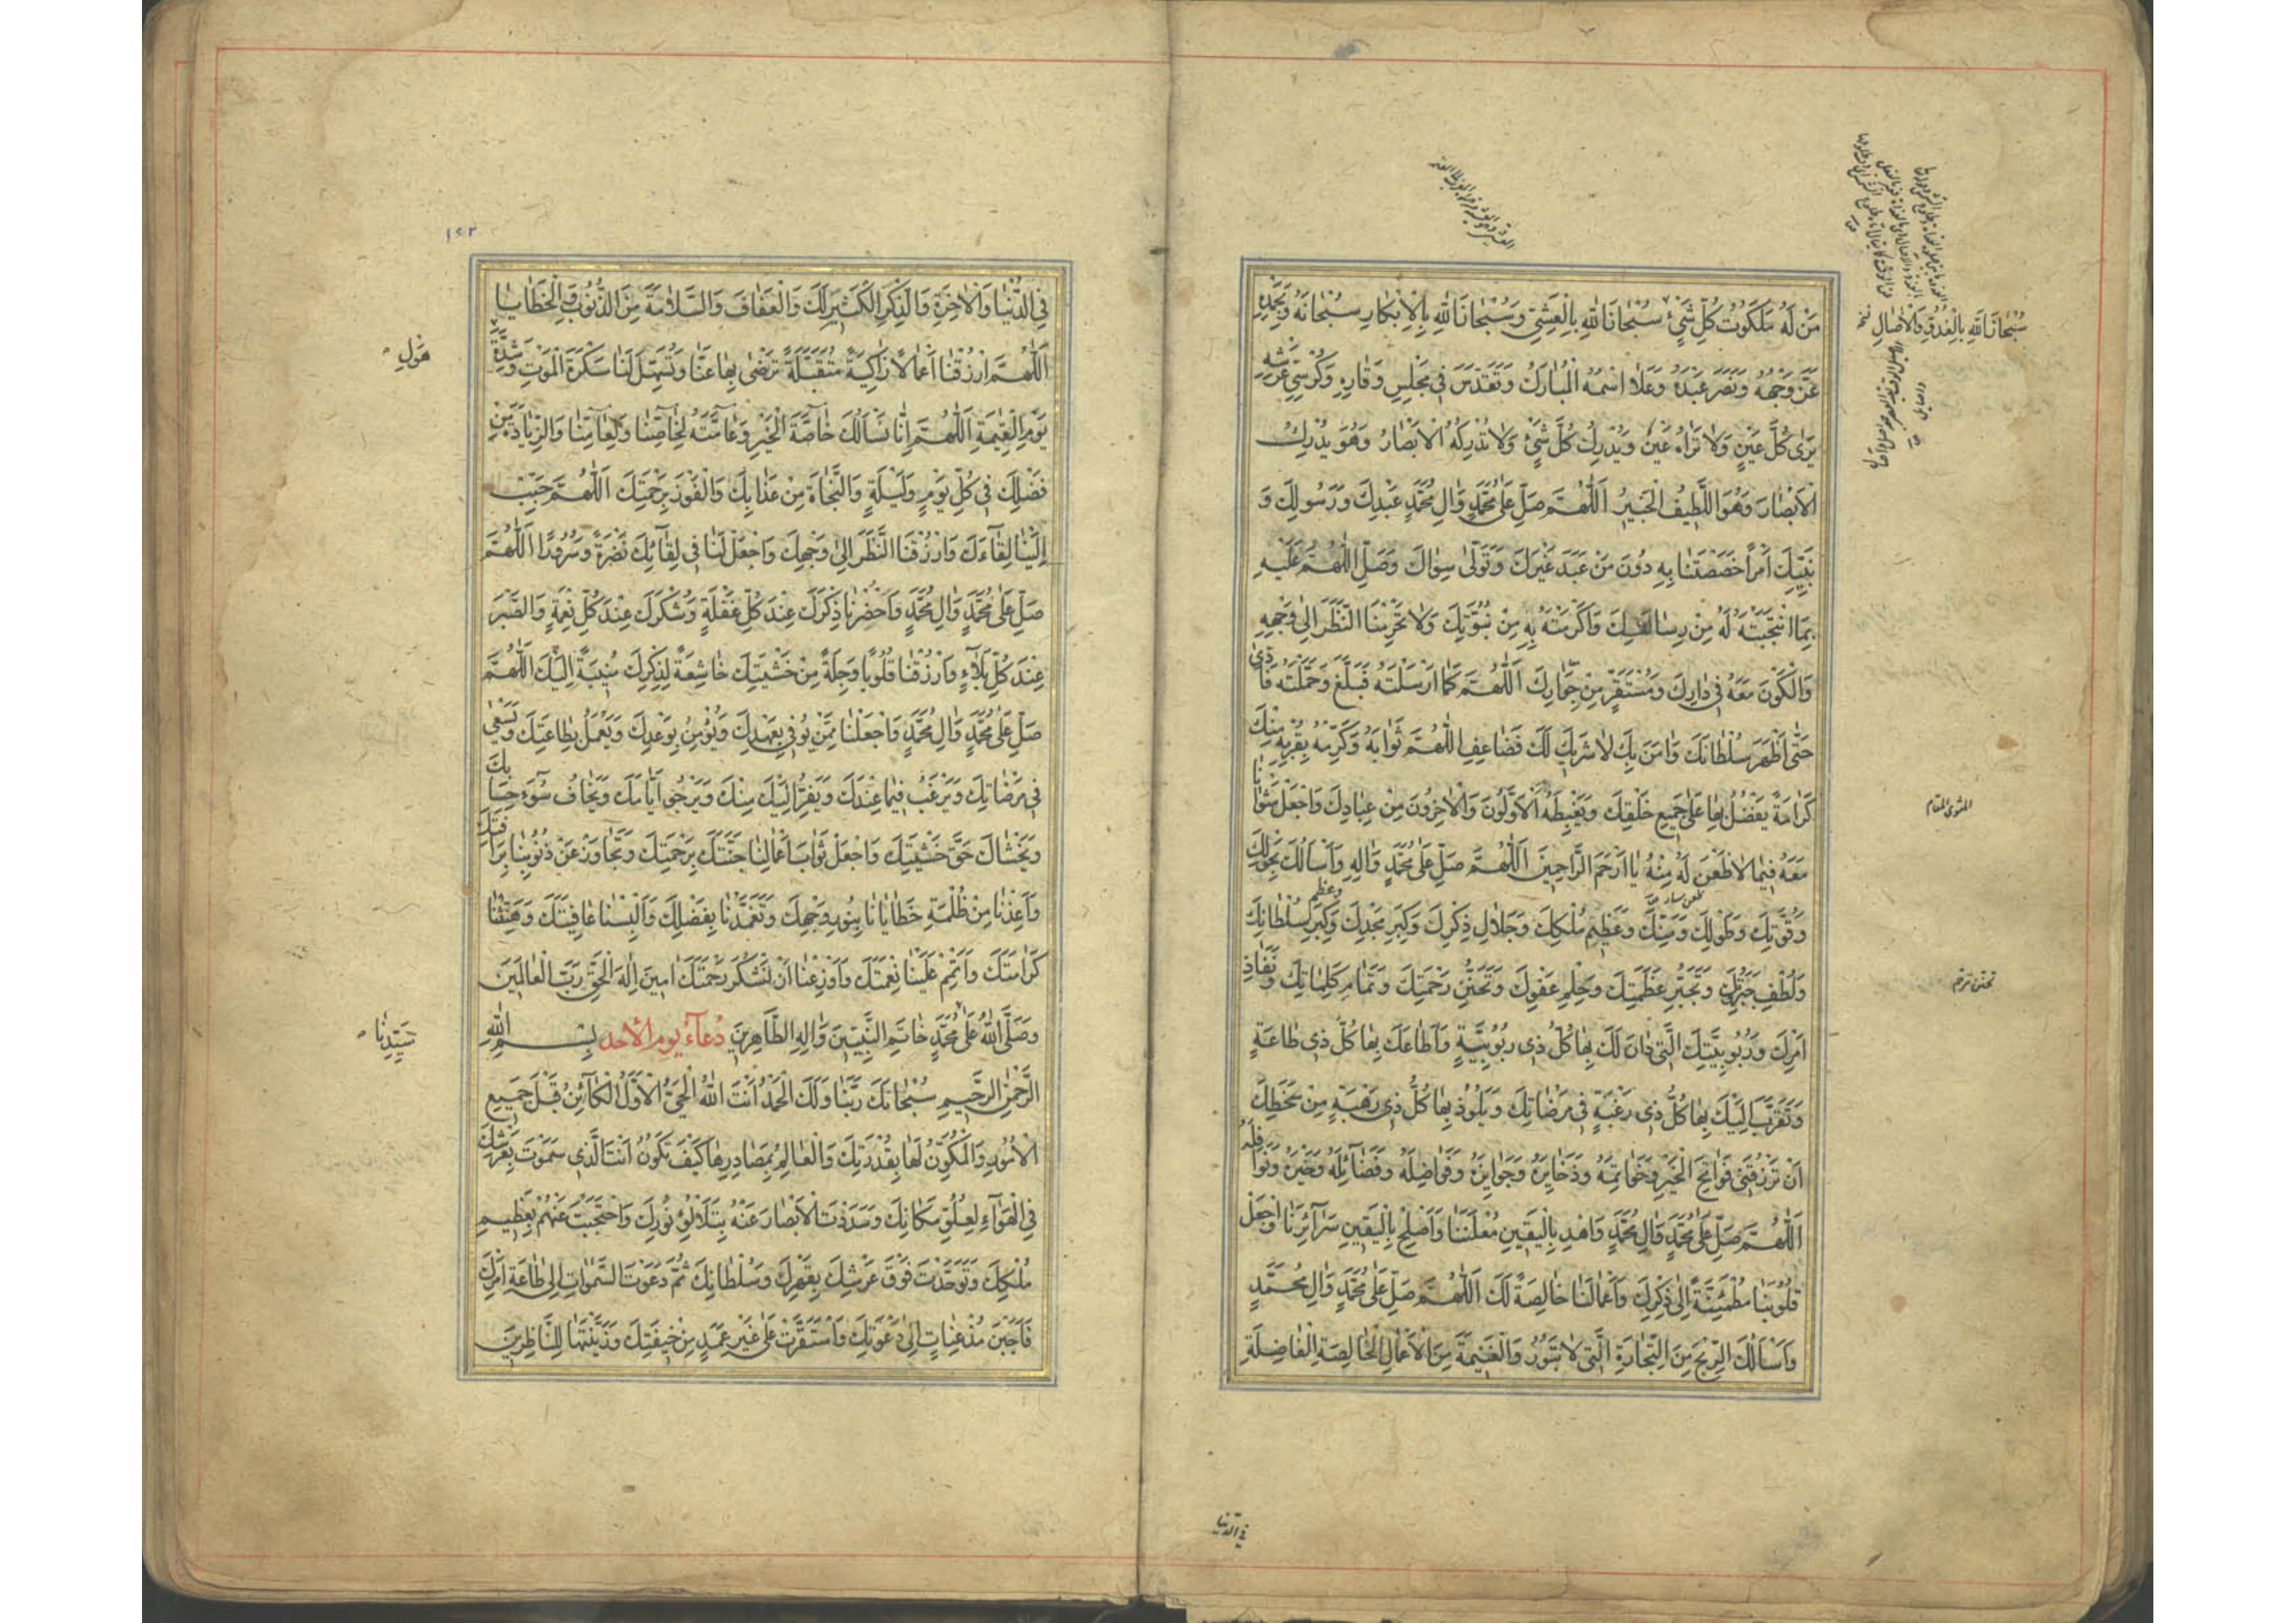 مَنْ لَهُ مَلَكُوتُ كُلِّ شَيْءٍ سُبْحَانَ اللهِ بِالْعَشِيِّ وَسُبْحَانَ اللهِ بِالْاِبْكَارِ سُبْحَانَهُ وَبِحَمْدِهِ
عَزَّ وَجْهُهُ وَنَصَرَ عَبْدَهُ وَعَلَا اسْمُهُ الْمُبَارَكُ وَتَقَدَّسَ فِي مَجْلِسِ وَقَارِهِ وَكُرْسِيِّ عَرْشِهِ
يَرٰى كُلَّ عَيْنٍ وَلَا تَرَاهُ عَيْنٌ وَيُدْرِكُ كُلَّ شَيْءٍ وَلَا تُدْرِكُهُ الْاَبْصَارُ وَهُوَ يُدْرِكُ
الْاَبْصَارَ وَهُوَ اللَّطِيفُ الْخَبِيرُ اَللّٰهُمَّ صَلِّ عَلٰى مُحَمَّدٍ وَاٰلِ مُحَمَّدٍ عَبْدِكَ وَرَسُولِكَ وَ
نَبِيِّكَ اَمْرًا خَصَصْتَنَا بِهِ دُونَ مَنْ عَبَدَ غَيْرَكَ وَتَوَلّٰى سِوَاكَ وَصَلِّ اللّٰهُمَّ عَلَيْهِ
بِمَا انْتَجَبْتَهُ لَهُ مِنْ رِسَالَتِكَ وَاَكْرَمْتَهُ بِهِ مِنْ نُبُوَّتِكَ وَلَا تَحْرِمْنَا النَّظَرَ اِلٰى وَجْهِهِ
وَالْكَوْنَ مَعَهُ فِي دَارِكَ وَمُسْتَقَرٍّ مِنْ جِوَارِكَ اَللّٰهُمَّ كَمَا اَرْسَلْتَهُ فَبَلَّغَ وَحَمَّلْتَهُ فَاَدّٰى
حَتّٰى اَظْهَرَ سُلْطَانَكَ وَاٰمَنَ بِكَ لَا شَرِيكَ لَكَ فَضَاعِفِ اللّٰهُمَّ ثَوَابَهُ وَكَرِّمْهُ بِقُرْبِهِ مِنْكَ
كَرَامَةً يَفْضُلُ بِهَا عَلٰى جَمِيعِ خَلْقِكَ وَيَغْبِطُهُ الْاَوَّلُونَ وَالْاٰخِرُونَ مِنْ عِبَادِكَ وَاجْعَلْ مَثْوَانَا
مَعَهُ فِيمَا لَا ظَعْنَ لَهُ مِنْهُ يَا اَرْحَمَ الرَّاحِمِينَ اَللّٰهُمَّ صَلِّ عَلٰى مُحَمَّدٍ وَاٰلِهِ وَاَسْاَلُكَ بِحَوْلِكَ
وَقُوَّتِكَ وَطَوْلِكَ وَمَنِّكَ وَعَظِيمِ مُلْكِكَ وَجَلَالِ ذِكْرِكَ وَكِبَرِ مَجْدِكَ وَكِبَرِ سُلْطَانِكَ
وَلُطْفِ جَبَرُوتِكَ وَتَجَبُّرِ عَظَمَتِكَ وَحِلْمِ عَفْوِكَ وَتَحَنُّنِ رَحْمَتِكَ وَتَمَامِ كَلِمَاتِكَ وَنَفَاذِ
اَمْرِكَ وَرُبُوبِيَّتِكَ الَّتِي دَانَ لَكَ بِهَا كُلُّ ذِي رُبُوبِيَّةٍ وَاَطَاعَكَ بِهَا كُلُّ ذِي طَاعَةٍ
وَتَقَرَّبَ اِلَيْكَ بِهَا كُلُّ ذِي رَغْبَةٍ فِي مَرْضَاتِكَ وَيَلُوذُ بِهَا كُلُّ ذِي رَهْبَةٍ مِنْ سَخَطِكَ
اَنْ تَرْزُقَنِي فَوَاتِحَ الْخَيْرِ وَخَوَاتِمَهُ وَذَخَايِرَهُ وَجَوَايِزَهُ وَفَوَاضِلَهُ وَفَضَائِلَهُ وَخَيْرَهُ وَنَوَافِلَهُ
اَللّٰهُمَّ صَلِّ عَلٰى مُحَمَّدٍ وَاٰلِ مُحَمَّدٍ وَاهْدِ بِالْيَقِينِ مُعْلَنَنَا وَاَصْلِحْ بِالْيَقِينِ سَرَآئِرَنَا وَاجْعَلْ
قُلُوبَنَا مُطْمَئِنَّةً اِلٰى ذِكْرِكَ وَاَعْمَالَنَا خَالِصَةً لَكَ اَللّٰهُمَّ صَلِّ عَلٰى مُحَمَّدٍ وَاٰلِ مُحَمَّدٍ
وَاَسْاَلُكَ الرِّبْحَ مِنَ التِّجَارَةِ الَّتِي لَا تَبُورُ وَالْغَنِيمَةَ مِنَ الْاَعْمَالِ الْخَالِصَةِ الْفَاضِلَةِ
سُبْحَانَ اللهِ بِالْغُدُوِّ وَالْاٰصَالِ
المثوى المقام
تحنن ترحم
فى الدنيا
١٢٢
فِي الدُّنْيَا وَالْاٰخِرَةِ وَالذِّكْرِ الْكَثِيرِ لَكَ وَالْعَفَافَ وَالسَّلَامَةَ مِنَ الذُّنُوبِ وَالْخَطَايَا
اَللّٰهُمَّ ارْزُقْنَا اَعْمَالًا زَاكِيَةً مُتَقَبَّلَةً تَرْضٰى بِهَا عَنَّا وَتُسَهِّلُ لَنَا سَكْرَةَ الْمَوْتِ وَشِدَّةَ
يَوْمِ الْقِيٰمَةِ اَللّٰهُمَّ اِنَّا نَسْاَلُكَ خَاصَّةَ الْخَيْرِ وَعَامَّتَهُ لِخَاصِّنَا وَلِعَامِّنَا وَالزِّيَادَةَ مِنْ
فَضْلِكَ فِي كُلِّ يَوْمٍ وَلَيْلَةٍ وَالنَّجَاةَ مِنْ عَذَابِكَ وَالْفَوْزَ بِرَحْمَتِكَ اَللّٰهُمَّ حَبِّبْ
اِلَيْنَا لِقَاءَكَ وَارْزُقْنَا النَّظَرَ اِلٰى وَجْهِكَ وَاجْعَلْ لَنَا فِي لِقَائِكَ نَضْرَةً وَسُرُورًا اَللّٰهُمَّ
صَلِّ عَلٰى مُحَمَّدٍ وَاٰلِ مُحَمَّدٍ وَاَحْضِرْنَا ذِكْرَكَ عِنْدَ كُلِّ غَفْلَةٍ وَشُكْرَكَ عِنْدَ كُلِّ نِعْمَةٍ وَالصَّبْرَ
عِنْدَ كُلِّ بَلَاءٍ وَارْزُقْنَا قُلُوبًا وَجِلَةً مِنْ خَشْيَتِكَ خَاشِعَةً لِذِكْرِكَ مُنِيبَةً اِلَيْكَ اَللّٰهُمَّ
صَلِّ عَلٰى مُحَمَّدٍ وَاٰلِ مُحَمَّدٍ وَاجْعَلْنَا مِمَّنْ يُوفِي بِعَهْدِكَ وَيُؤْمِنُ بِوَعْدِكَ وَيَعْمَلُ بِطَاعَتِكَ وَيَسْعٰى
فِي مَرْضَاتِكَ وَيَرْغَبُ فِيمَا عِنْدَكَ وَيَفِرُّ اِلَيْكَ مِنْكَ وَيَرْجُو اَيَّامَكَ وَيَخَافُ سُوءَ حِسَابِكَ
وَيَخْشَاكَ حَقَّ خَشْيَتِكَ وَاجْعَلْ ثَوَابَ اَعْمَالِنَا جَنَّتَكَ بِرَحْمَتِكَ وَتَجَاوَزْ عَنْ ذُنُوبِنَا بِرَاْفَتِكَ
وَاَعِذْنَا مِنْ ظُلْمَةِ خَطَايَانَا بِنُورِ وَجْهِكَ وَتَغَمَّدْنَا بِفَضْلِكَ وَاَلْبِسْنَا عَافِيَتَكَ وَهَنِّئْنَا
كَرَامَتَكَ وَاَتْمِمْ عَلَيْنَا نِعْمَتَكَ وَاَوْزِعْنَا اَنْ نَشْكُرَ رَحْمَتَكَ اٰمِينَ اِلٰهَ الْحَقِّ رَبَّ الْعَالَمِينَ
وَصَلَّى اللهُ عَلٰى مُحَمَّدٍ خَاتَمِ النَّبِيِّينَ وَاٰلِهِ الطَّاهِرِينَ دُعَآءُ يَوْمِ الْاَحَدِ بِسْمِ اللهِ
الرَّحْمٰنِ الرَّحِيمِ سُبْحَانَكَ رَبَّنَا وَلَكَ الْحَمْدُ اَنْتَ اللهُ الْحَيُّ الْاَوَّلُ الْكَائِنُ قَبْلَ جَمِيعِ
الْاُمُورِ وَالْمُكَوِّنُ لَهَا بِقُدْرَتِكَ وَالْعَالِمُ بِمَصَادِرِهَا كَيْفَ تَكُونُ اَنْتَ الَّذِي سَمَوْتَ بِعَرْشِكَ
فِي الْهَوَآءِ لِعُلُوِّ مَكَانِكَ وَسَدَدْتَ الْاَبْصَارَ عَنْهُ بِتَلَأْلُؤِ نُورِكَ وَاحْتَجَبْتَ عَنْهُمْ بِعَظِيمِ
مُلْكِكَ وَتَوَحَّدْتَ فَوْقَ عَرْشِكَ بِقَهْرِكَ وَسُلْطَانِكَ ثُمَّ دَعَوْتَ السَّمٰوَاتِ اِلٰى طَاعَةِ اَمْرِكَ
فَاَجَبْنَ مُذْعِنَاتٍ اِلٰى دَعْوَتِكَ وَاسْتَقَرَّتْ عَلٰى غَيْرِ عَمَدٍ مِنْ خِيفَتِكَ وَزَيَّنْتَهَا لِلنَّاظِرِينَ
هَوْلِ
سَيِّدِنَا